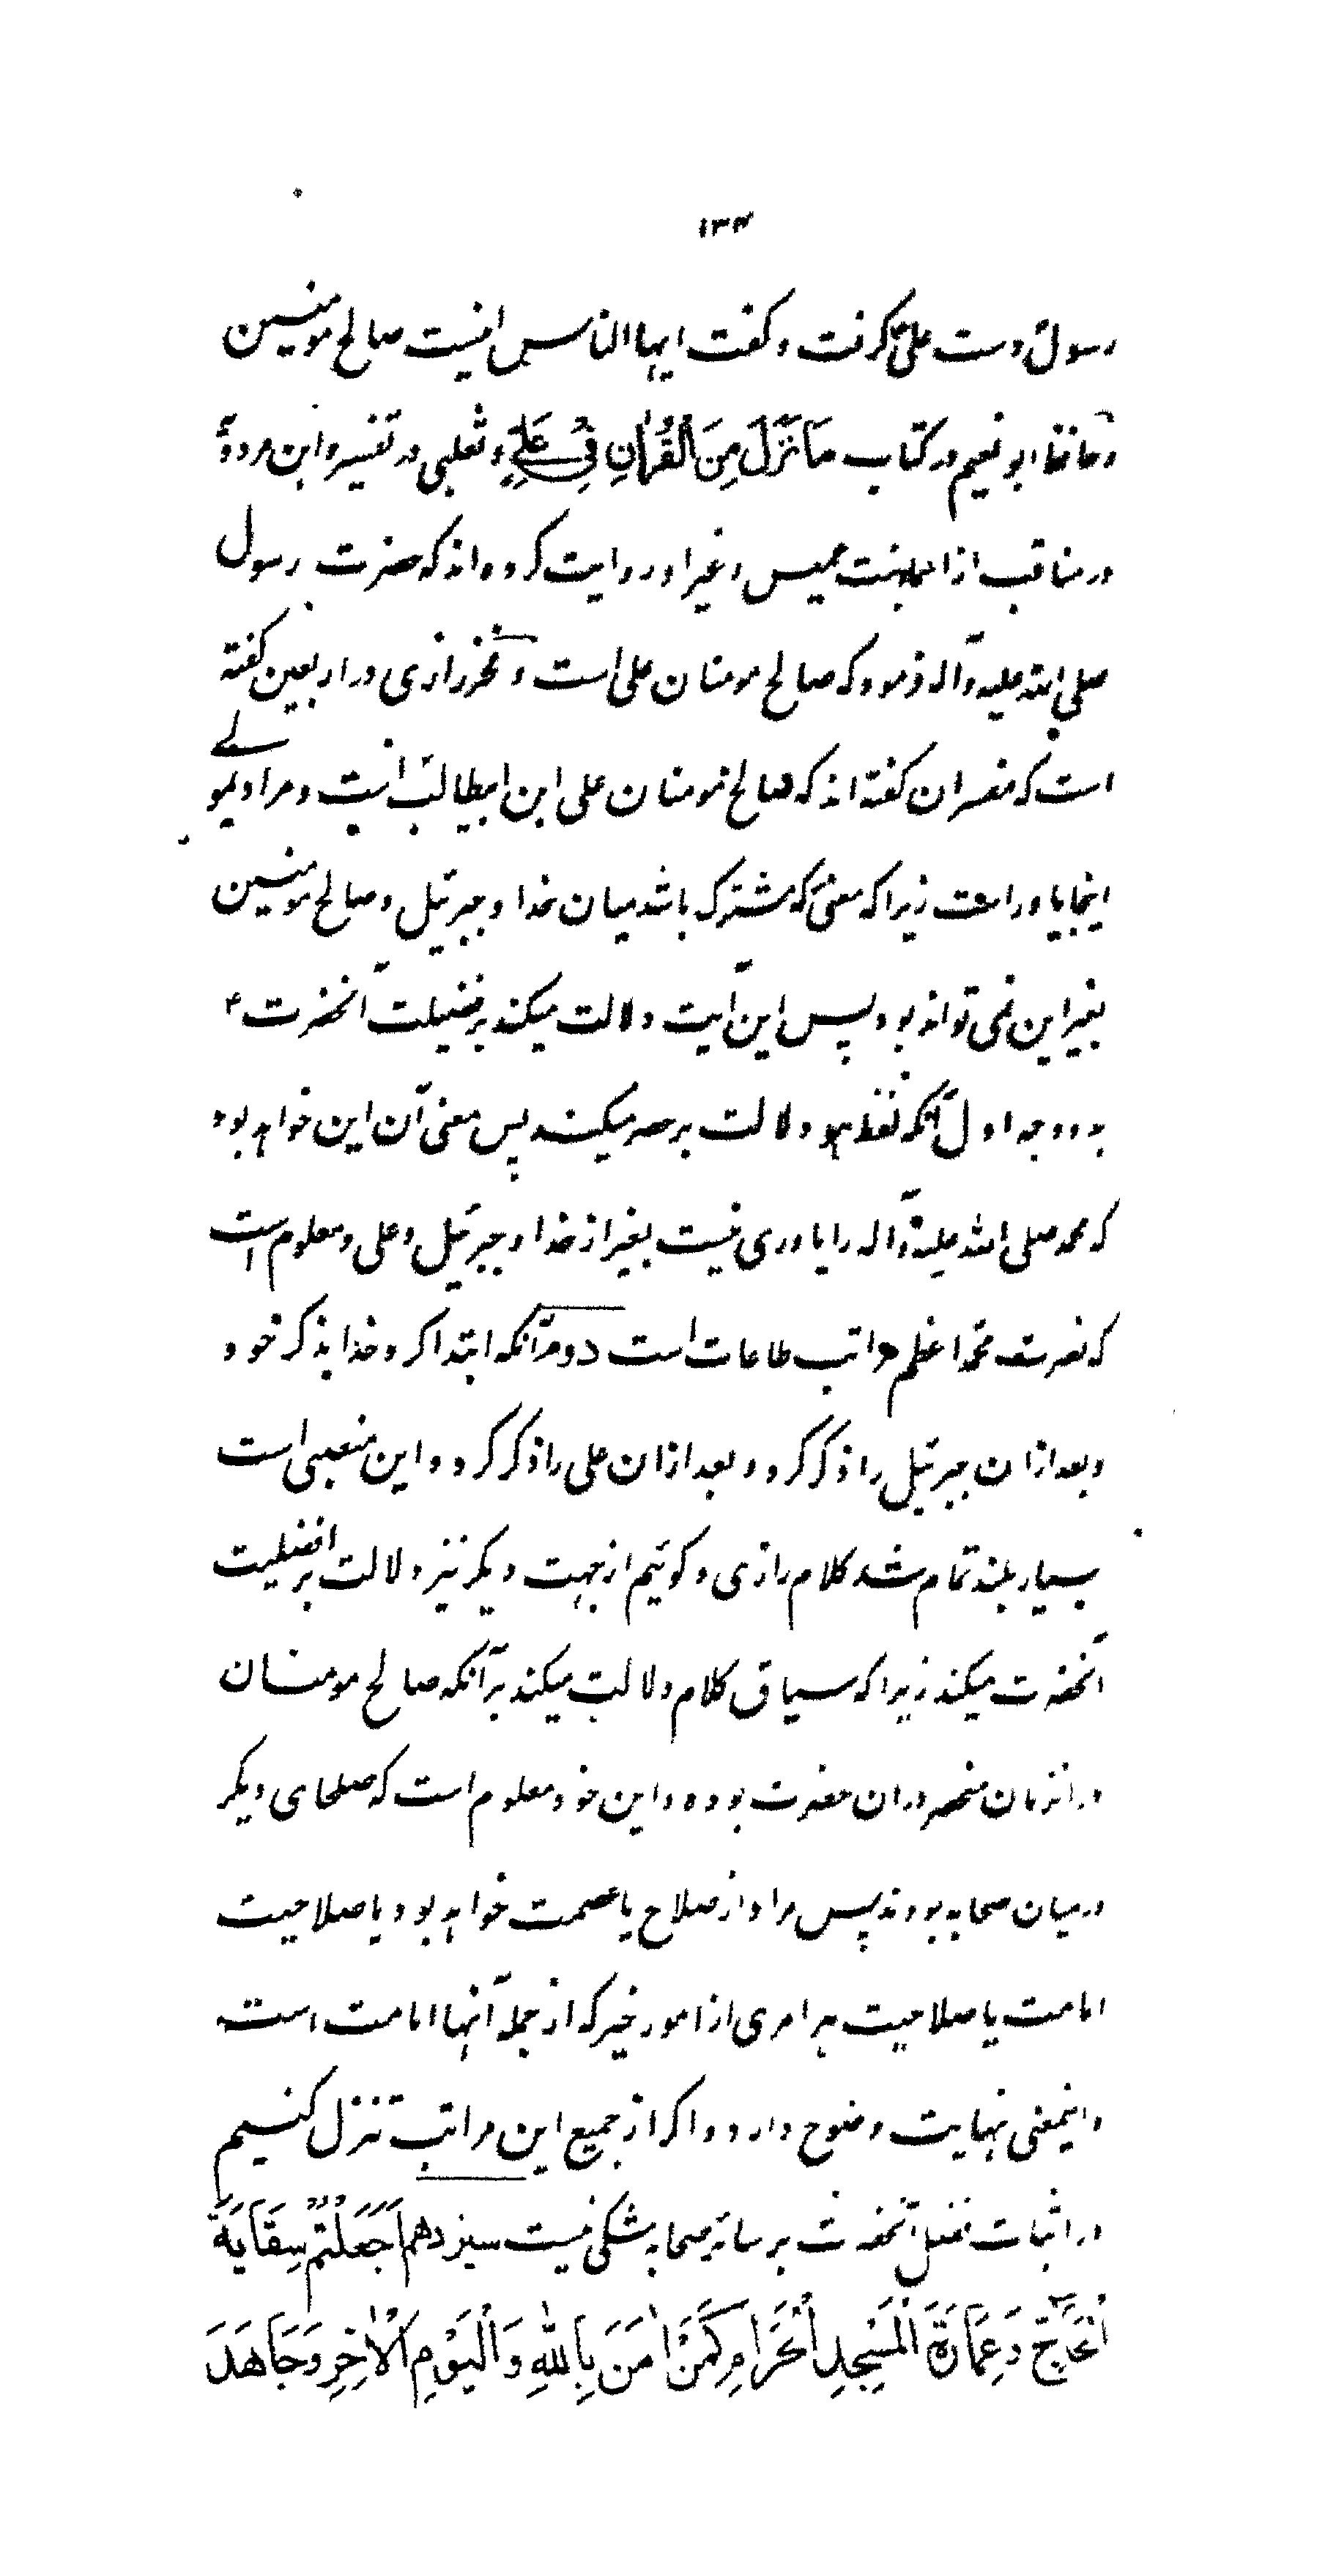 ۱۳۴
رسولؐ دست علیؑ گرفت و کفت ایها الناس اینست صالح مومنین
و حافظ ابو نعیم در کتاب مَا نَزَلَ مِنَ الْقُرْاٰنِ فِیْ عَلِیٍّ و ثعلبی در تفسیر و ابن مردوۀ
در مناقب از اسماء بنت عمیس و غیر او روایت کرده اند که حضرت رسول
صلی الله علیه وآله فرمود که صالح مومنان علی است و فخر رازی در اربعین کفته
است که مفسران کفته اند که صالح مومنان علی ابن ابیطالبؑ است و مراد بمولے
اینجا یاور است زیرا که معنیٔ که مشترک باشد میان خدا و جبرئیل و صالح مومنین
بغیر این نمی تواند بود پس این آیت دلالت میکند بر فضیلت آنحضرت ع
بدو وجه اول آنکه لفظ هو دلالت بر حصر میکند پس معنی آن این خواهد بود
که محمد صلی الله علیه وآله را یاوری نیست بغیر از خدا و جبرئیل و علی و معلوم است
که نصرت محمد اعظم مراتب طاعات است دوم آنکه ابتدا کرد خدا بذکر خود
و بعد ازان جبرئیل را ذکر کرد و بعد ازان علی را ذکر کرد و این منصبی است
بسیار بلند تمام شد کلام رازی و کوئیم از جهت دیکر نیز دلالت بر افضلیت
آنحضرت میکند زیرا که سیاق کلام دلالت میکند بر آنکه صالح مومنان
در انزمان منحصر دران حضرت بوده و این خود معلوم است که صلحای دیکر
در میان صحابه بودند پس مراد از صلاح یا عصمت خواهد بود یا صلاحیت
امامت یا صلاحیت هر امری از امور خیر که از جمله آنها امامت است
و اینمعنی نهایت وضوح دارد و اکر از جمیع این مراتب تنزل کنیم
در اثبات فضل آنحضرت بر سائر صحابه شکی نیست سیزدهم اَجَعَلْتُمْ سِقَایَةَ
الْحَآجِّ وَعِمَارَةَ الْمَسْجِدِ الْحَرَامِ کَمَنْ اٰمَنَ بِاللهِ وَالْیَوْمِ الْاٰخِرِ وَجَاهَدَ